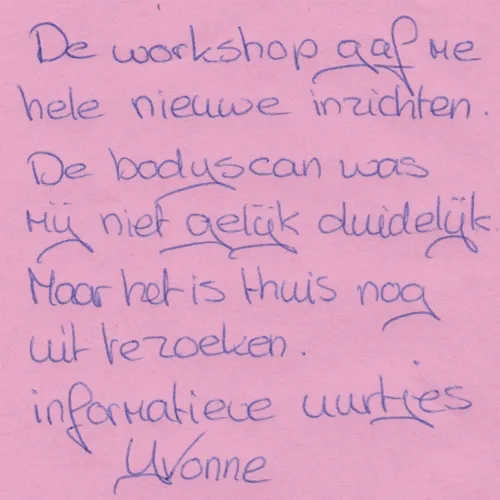 De workshop gaf me
hele nieuwe inzichten.
De bodyscan was
mij niet gelijk duidelijk.
Maar het is thuis nog
uit te zoeken.
informatieve uurtjes
Yvonne